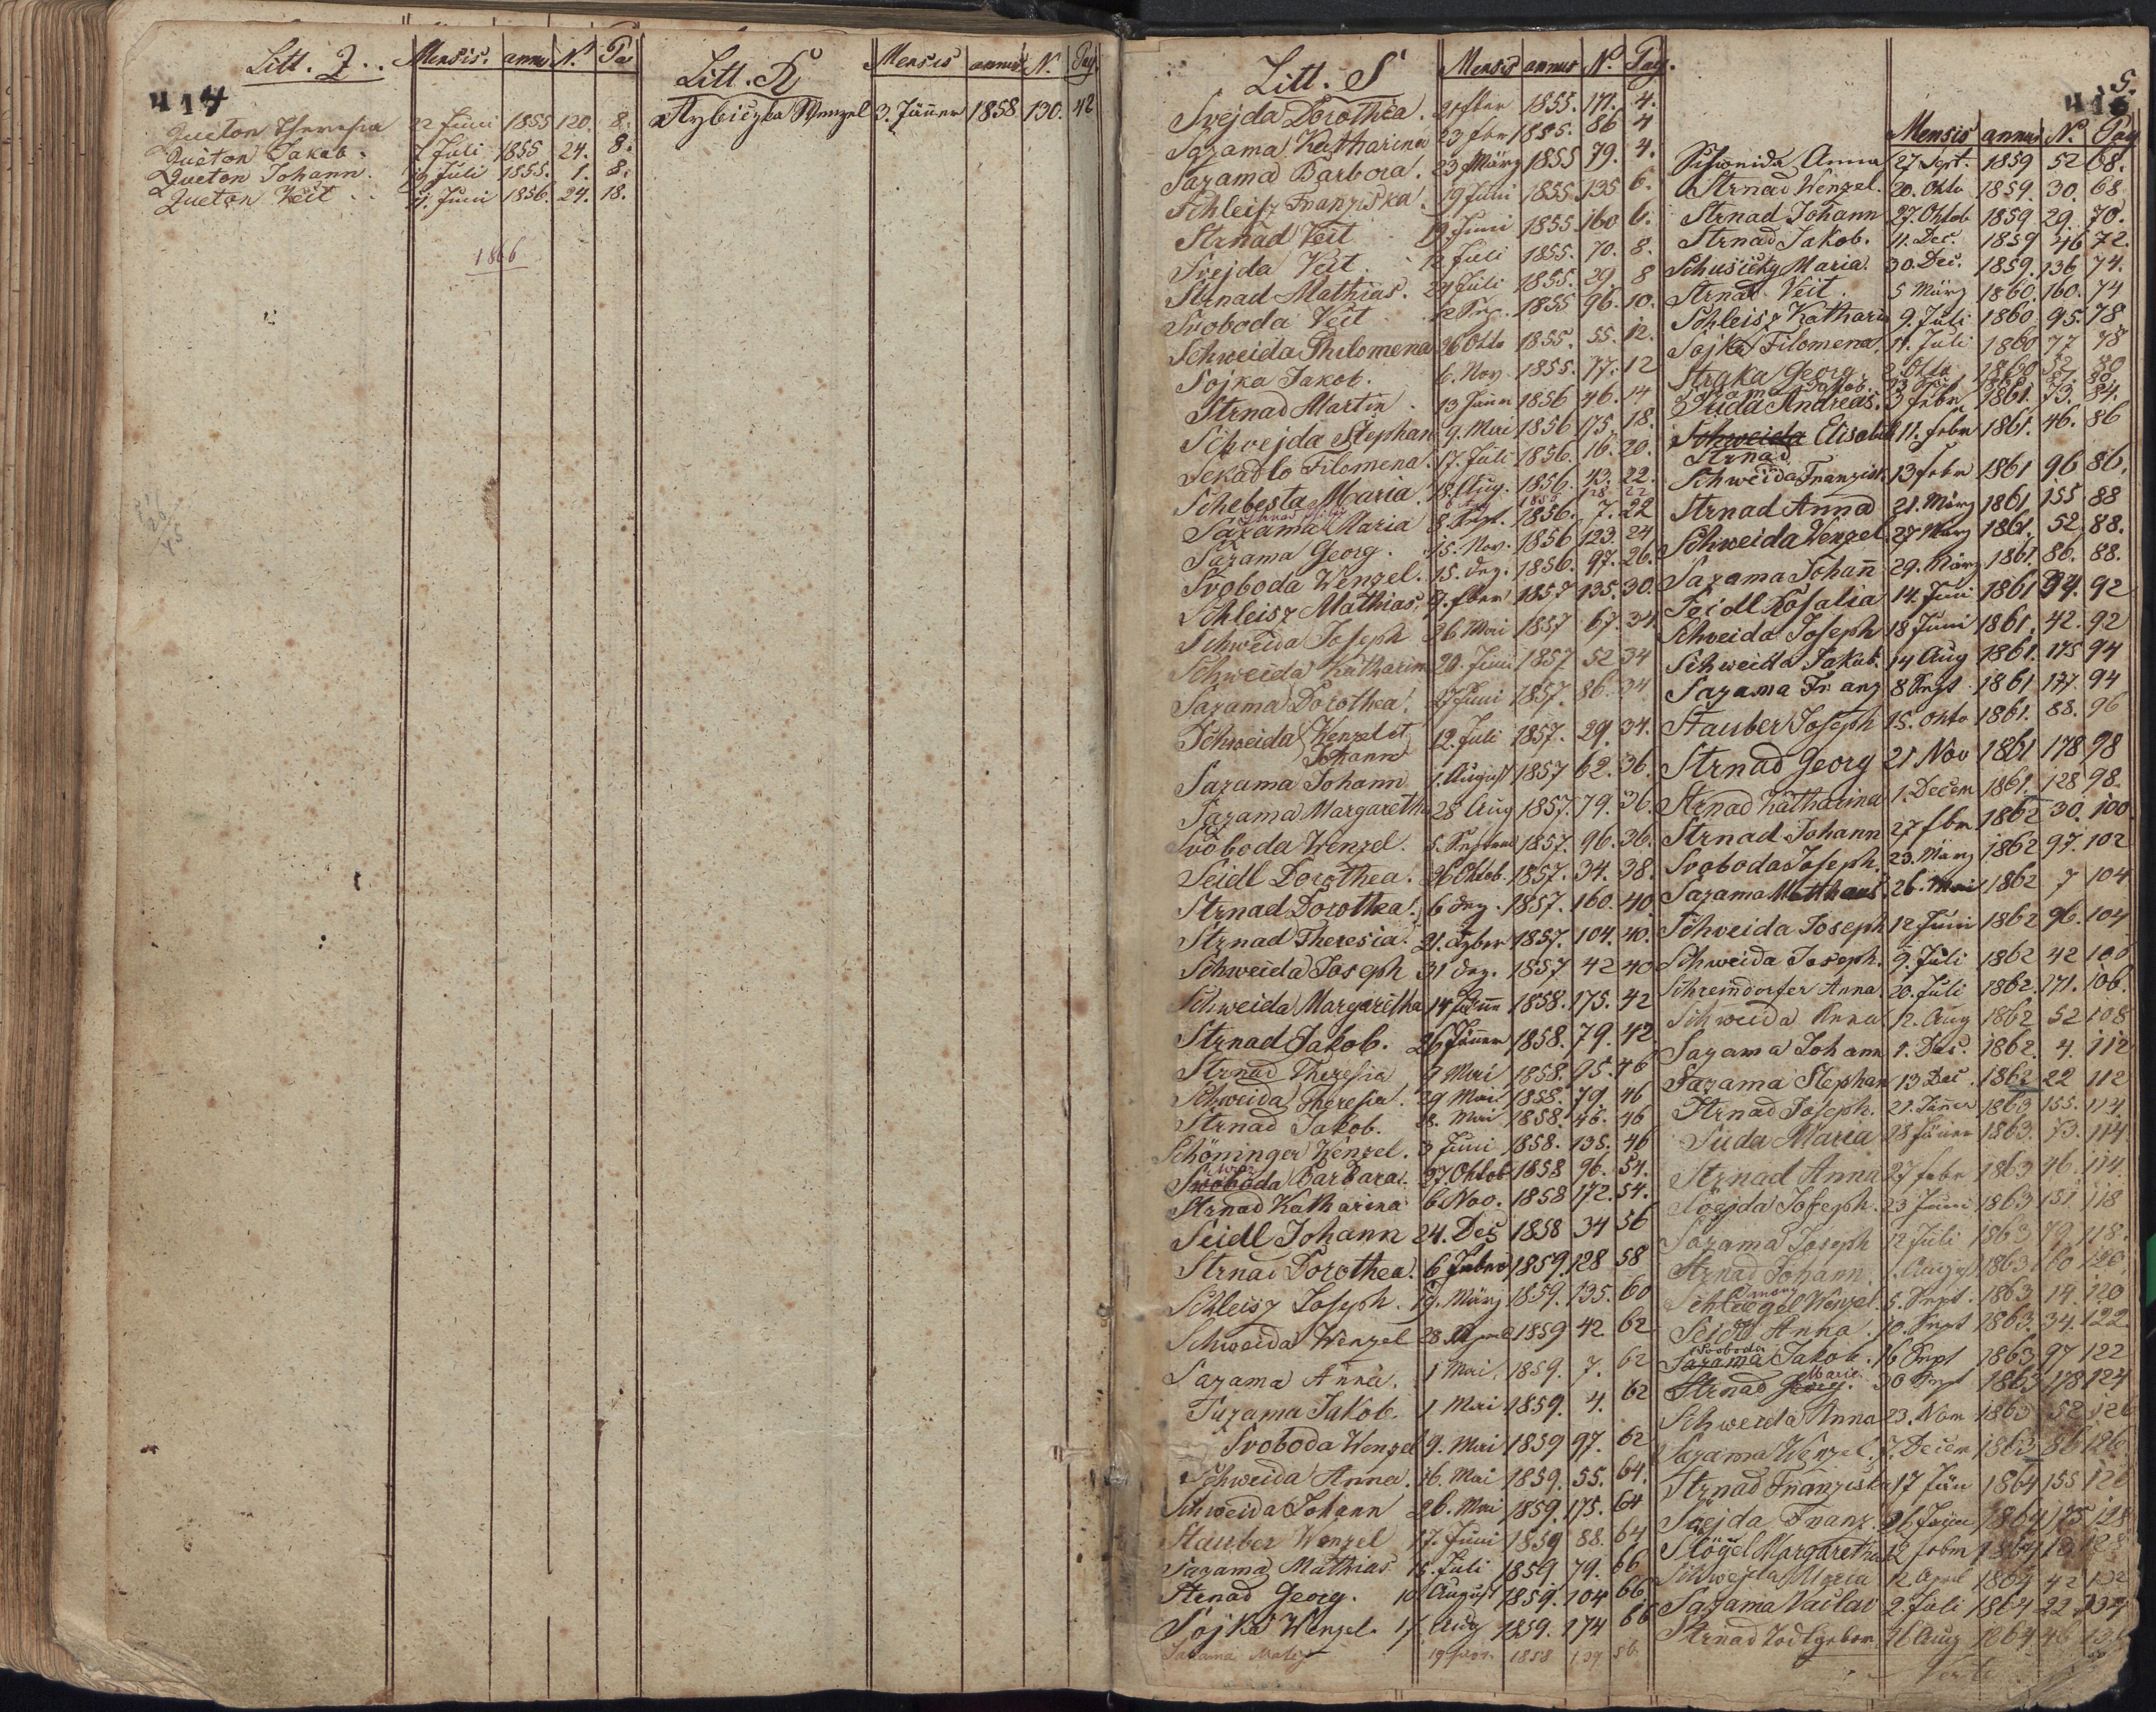 417
Litt. Q.. Mensis. annus N. Pag
Queton Theresia 22 Juni 1855 120. 8.
Queton Jakob. 7 Juli 1855 24. 8.
Queton Johann. Juli 1855. 1. 8.
Queton Veit .. Juni 1856. 24. 18.
1866
Litt. R Mensis annus N. Pag.
Rybiczka Wenzel 3. Jänner 1858. 130. 42
Litt. S Mensis annus N. Pag.
Svejda Dorothea. 1855. 171. 4.
Sazama Katharina 23 feber 1855. 86 4
Sazama Barbora. 23 März 1855 79. 4.
Schleisz Franziska. 19 Juni 1855. 135 6.
Strnad Veit 19. Juni 1855. 160 6.
Svejda Veit. 12 Juli 1855. 70. 8.
Strnad Mathias. 24 Juli 1855. 29. 8
Svoboda Veit 1855 96. 10.
Schweida Philomena 26 Okto 1855. 55. 12.
Sojka Jakob. 6. Nov. 1855. 77. 12
Strnad Martin. 13 Jänn 1856 46. 14
Schvejda Stephan 9. Mai 1856 175. 18.
Sekadlo Filomena. 17. Juli 1856. 16. 20.
Schebesta Maria. 18. Aug. 1856. 43. 22.
Sazama Maria 8. Sept. 1856. 7. 22
Sazama Georg. 15. Nov. 1856 123. 24
Svoboda Wenzel. 15. Dez. 1856. 97. 26.
Schleisz Mathias. 9. feber 1857 135. 30.
Schweida Joseph 26 Mai 1857 67. 34
Schweida Katharina 20. Juni 1857 52 34
Sazama Dorothea. 27 Juni 1857. 86. 34
Schweida Wenzel et Johann 12. Juli 1857. 29. 34.
Sazama Johann 1. August 1857 62. 36.
Sazama Margaretha 28 Aug 1857. 79. 36.
Svoboda Wenzel. 5. Septem 1857. 96. 36.
Seidl Dorothea. 26 Oktob. 1857. 34. 38.
Strnad Dorothea. 6 Dez. 1857. 160. 40.
Strnad Theresia. 21. 1857. 104. 40.
Schweida Joseph 31 Dez. 1857 42 40
Schweida Margaretha 14 Jänn 1858. 175. 42
Strnad Jakob. 26 Jänner 1858. 79. 42.
Strnad Theresia Mai 1858. 95. 46
Schweida Theresia. 29 Mai 1858. 79. 46
Strnad Jakob. 28. Mai 1858. 46. 46
Schöninger Wenzel. 3 Juni 1858. 135. 46
Swoboda Barbara. 27. Oktob 1858 96. 54.
Strnad Katharina 6 Nov. 1858 172. 54.
Seidl Johann 24. Dec 1858 34 56
Strnad Dorothea. 6 Feber 1859. 128 58
Schleisz Joseph. 19. März 1859. 135. 60
Schweida Wenzel 28. April 1859 42. 62
Sazama Anna. 1 Mai. 1859. 7. 62
Sazama Jakob. 1 Mai 1859. 4. 62
Svoboda Wenzel 9. Mai 1859 97. 62
Schweida Anna. 16. Mai 1859. 55. 64.
Schweida Johann 26. Mai 1859. 175. 64
Stauber Wenzel 17. Juni 1859 88. 64
Sazama Mathias 15. Juli 1859 79. 66
Strnad Georg. 10 August 1859. 104 66
Sojka Wenzel 17. Aug 1859. 174 66
Sazama Matej 1858 56.
S.
Mensis annus N. Pag
Anna 27. Sept. 1859 52 68.
Strnad Wenzel. 20. Okto 1859. 30. 68
Strnad Johann 27. Oktob 1859 29. 70.
Strnad Jakob. 11. Dec. 1859 46 72.
Schusitzky Maria. 30. Dec. 1859. 136 74.
Strnad Veit. 5 März 1860. 160. 74
Schleisz Katharin 9. Juli 1860. 95. 78
Sojka Filomena. 11. Juli 1860 77 78
Straka Georg. 2. Okto 1860 52 80
Suda Andreas. 3 Febr 1861. 73. 84.
Schweida Elisabeth 11. Febr 1861. 46. 86
Strnad
Schweida Franzisk. 13 febr 1861 96 86.
Strnad Anna 21. März 1861 155 88
Schweida Wenzel 27 März 1861. 52. 88.
Sazama Johann 29. März 1861. 86. 88.
Seidl Rosalia 14. Juni 1861 34. 92
Schweida Joseph 18 Juni 1861. 42. 92
Schweida Jakob. 14 Aug 1861. 175 94
Sazama Franz 8 Sept. 1861 177 94
Stauber Joseph 15. Okto 1861. 88. 96
Strnad Georg 21 Nov 1861 178 98
Strnad Katharina 1. Decem 1861. 128 98.
Strnad Johann 27 fbr 1862 30. 100.
Svoboda Joseph. 23. März 1862 97. 102
Sazama Matthaus. 26. Mai 1862 7 104
Schweida Joseph 12 Juni 1862 96. 104
Schweida Joseph. 9. Juli 1862 42 106
Schremdorfer Anna. 20. Juli 1862. 171. 106.
Schweida Anna 12. Aug 1862 52 108
Sazama Johann 1. Dec. 1862. 4. 112
Sazama Stephan 13 Dec. 1862 22 112
Strnad Joseph. 21. Jänner 1863 155. 114.
Suda Maria 28 Jänner 1863. 73. 114
Strnad Anna 27 febr 1863 46. 114.
Svejda Joseph. 23 Juni 1863 151 118
Sazama Joseph 12 Juli 1863 79. 118.
Strnad Johann 1. August 1863 160 120
Schlögel Wenzel. 5. Sept. 1863 14. 120
Seidl Anna. 10. Sept 1863. 34. 122
Svoboda
Sazama Jakob. 16 Sept 1863 97 122
Strnad Georg. Marie 30 Sept 1863 178 124
Schweida Anna 23. Nov 1863 52 126
Sazama Wenzel. 7. Decem 1863 86 126
Strnad Franziska 17 Jän 1864 155 126
Svejda Franz. 26 Jänn 1864 175 128
Slögel Margaretha 12 febr 1864
Schwejda Maria 12. April 1864 42 132
Sazama Vaclav 2. Juli 1864 22 134
Strnad Todtgeborn 26 Aug 1864 46